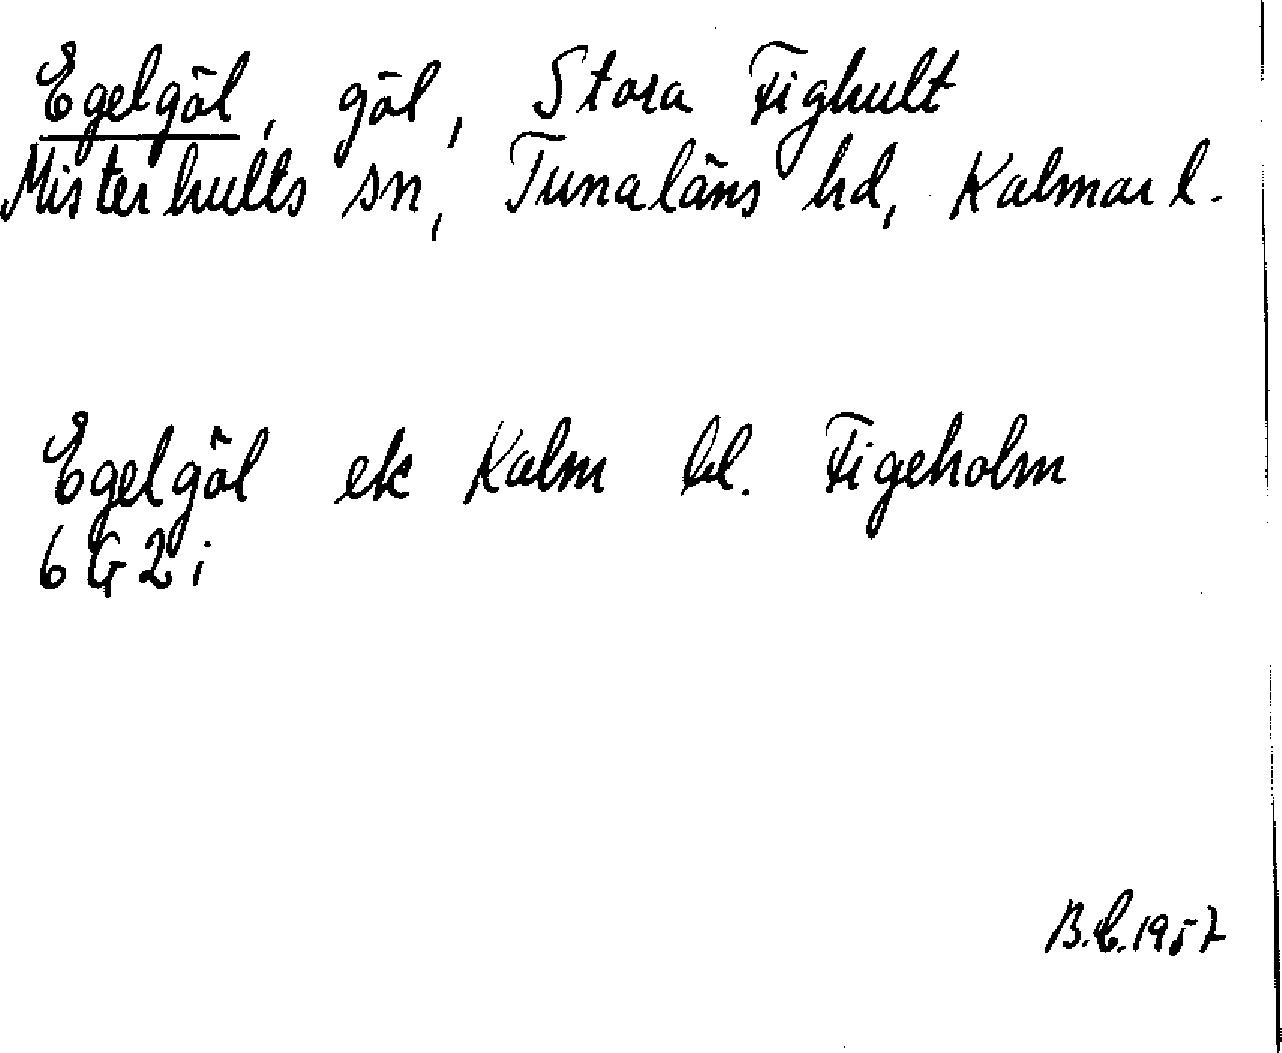 Egelgöl, göl, Stora Fighult
Misterhults sn, Tunaläns hd, Kalmar l.
Egelgöl ek Kalm bl. Figeholm
6 G 2 i
B.C. 1957